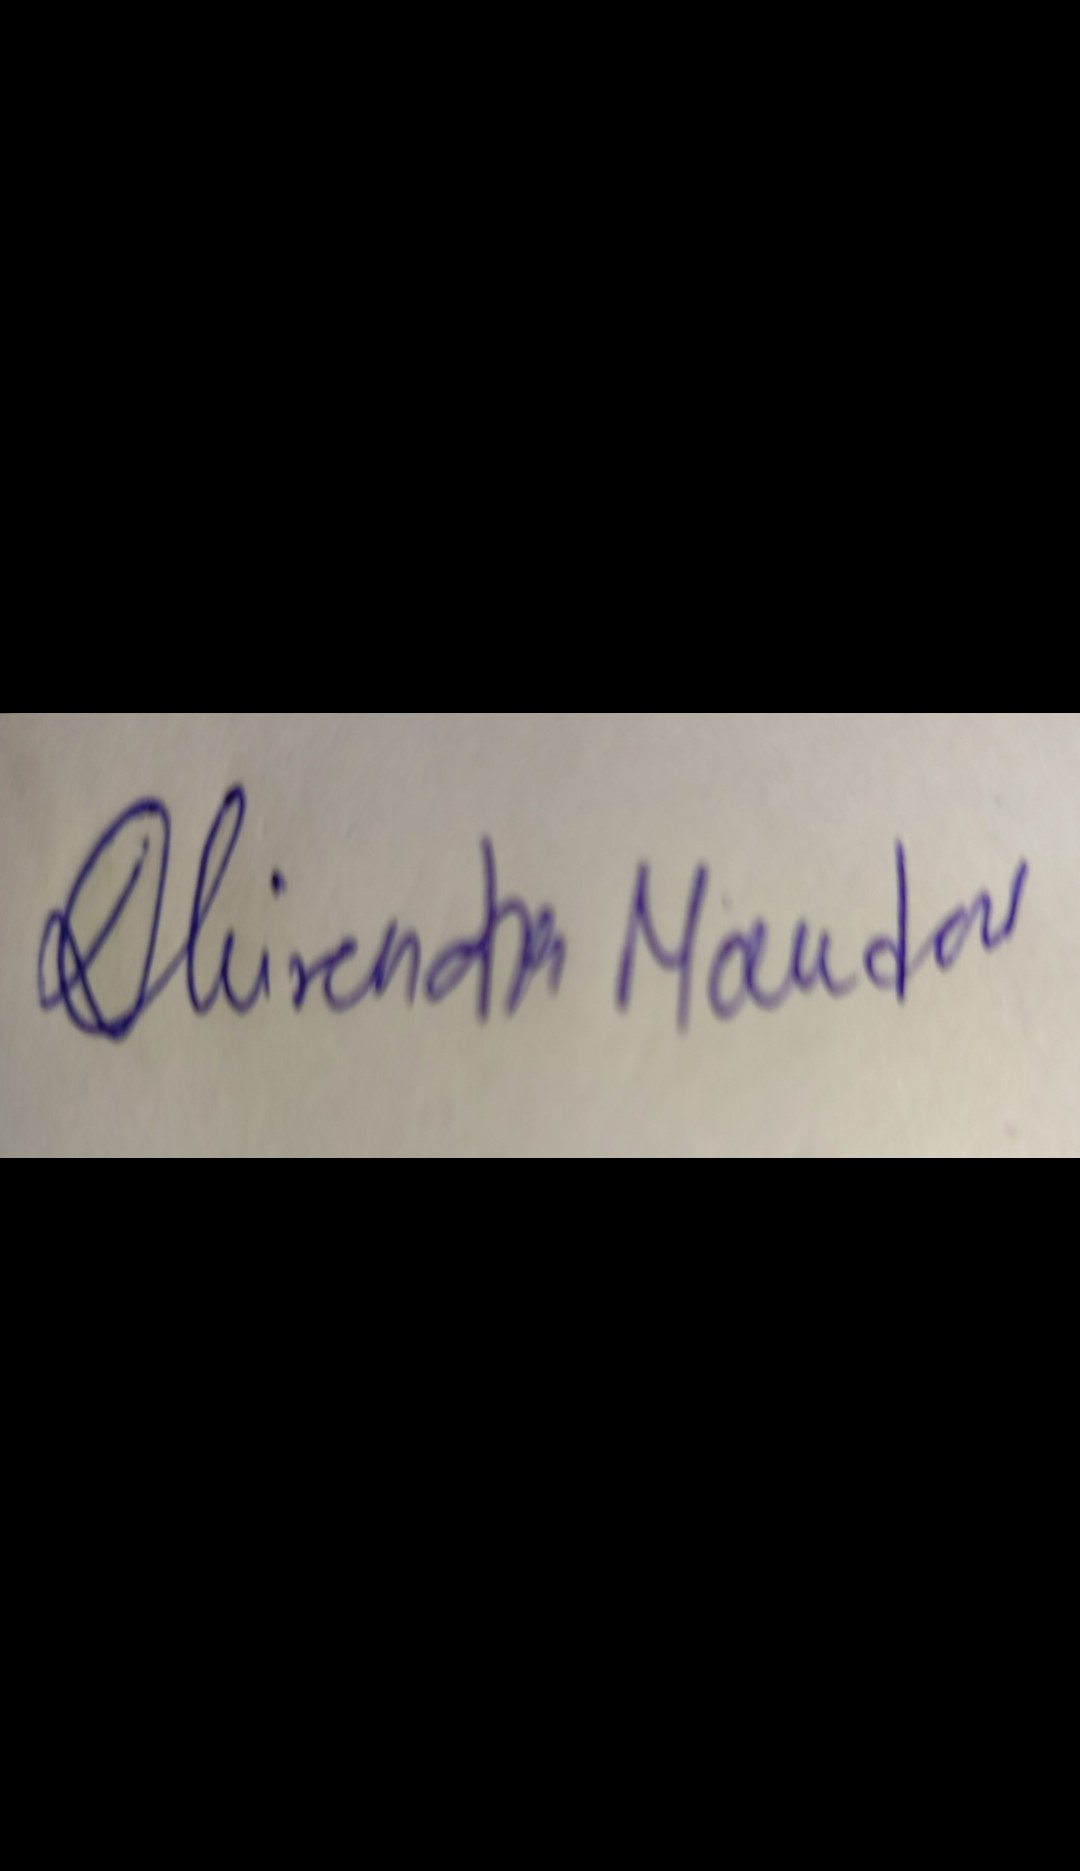 Dhirendra Mandar